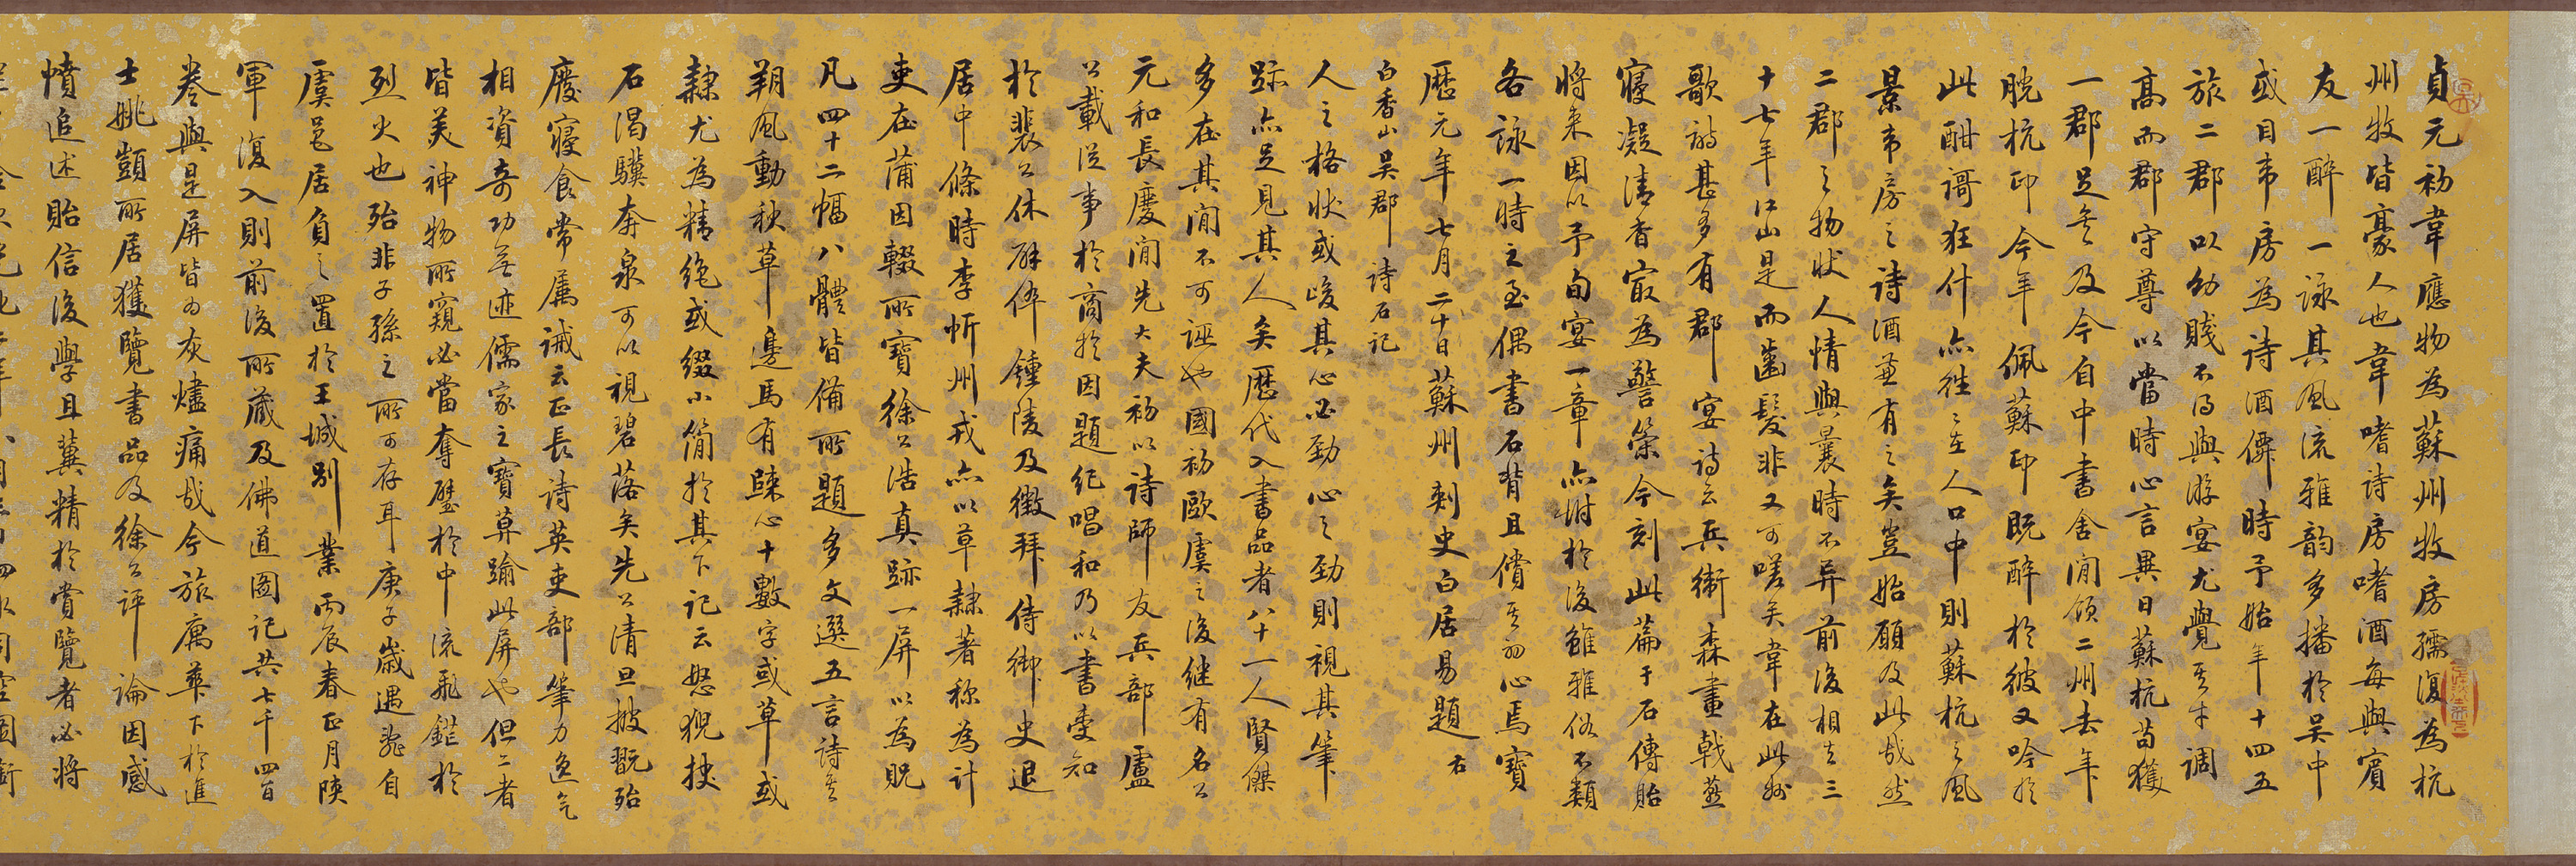 貞元初韋應物為蘇州牧房孺復為杭
州牧皆豪人也韋嗜詩房嗜酒每與賓
友一醉一詠其風流雅韵多播於吳中
或目韋房為詩酒僊時予始年十四五
旅二郡以幼賤不得與游宴尤覺其才調
高而郡守尊以當時心言異日蘇杭苟獲
一郡足矣及今自中書舍閒領二州去年
脫杭印今年佩蘇印既醉於彼又吟於
此酣謌狂什亦往々在人口中則蘇杭之風
景韋房之詩酒兼有之矣豈始願及此哉然
二郡之物狀人情與曩時不异前後相去三
十七年江山是而齒髮非又可嗟矣韋在此州
歌詩甚多有郡宴詩云兵衛森畫戟燕
寢凝清香最為警策今刻此篇于石傳貽
將来因以予旬宴一章亦坿於後雖雅俗不類
各詠一時之至偶書石背且償其初心焉寶
歷元年七月二十日蘇州刺史白居易題 右
白香山吳郡詩石記
人之格狀或峻其心必勁心之勁則視其筆
跡亦足見其人矣歷代入書品者八十一人賢傑
多在其閒不可誣也國初歐虞之後继有名公
元和長慶閒先大夫初以詩師友兵部盧
公載從事於商於因題紀唱和乃以書受知
於裴公休辟倅鍾陵及徵拜侍御史退
居中條時李忻州戎亦以草隸著称為計
吏在蒲因輟所寶徐公浩真跡一屏以為貺
凡四十二幅八體皆備所題多文選五言詩其
朔風動秋草邊馬有歸心十數字或草或
隸尤為精绝或缀小简於其下記云怒猊抉
石渴驥奔泉可以視碧落矣先公清旦披翫殆
廢寢食常属誡云正長詩英吏部筆力逸气
相資奇功無迹儒家之寶莫踰此屏也但二者
皆美神物所窺必當奪璧於中流飛鎚於
烈火也殆非子孫之所可存耳庚子歲遇亂自
虞邑居負之置於王城别業丙辰春正月陝
軍復入則前後所藏及佛道圖記共七千四百
卷與是屏皆为灰燼痛哉今旅寓華下於進
士姚顗所居獲覽書品及徐公評論因感
憤追述貽信後學且冀精於賞覽者必將